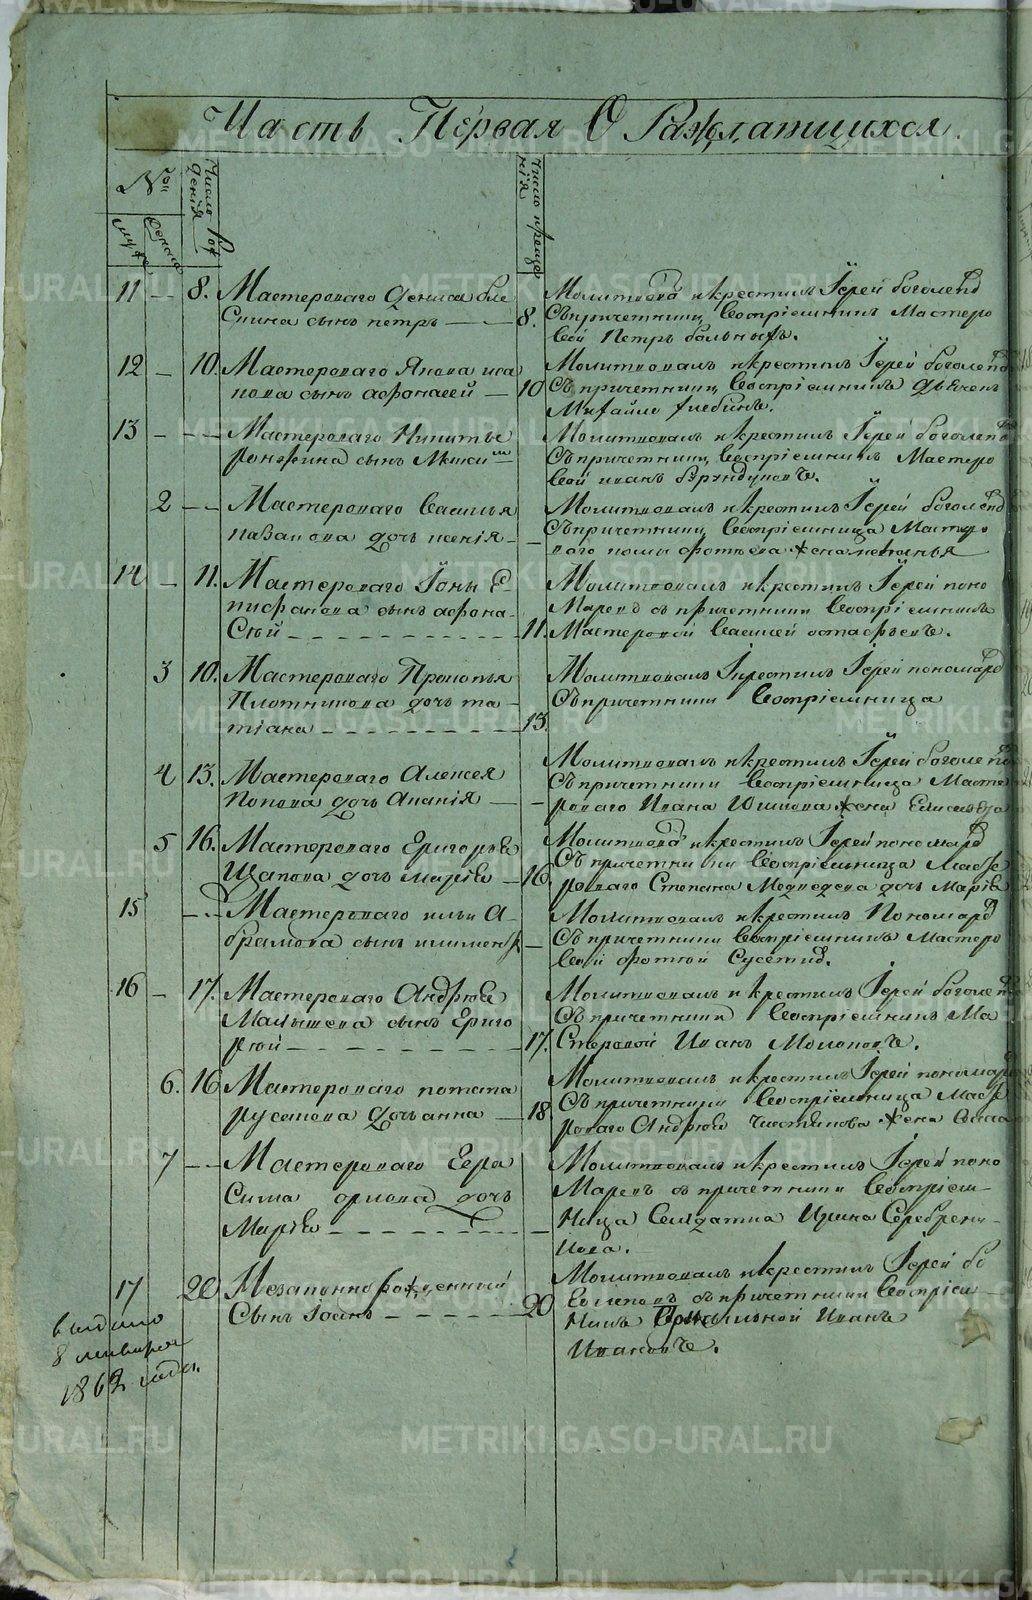 Часть Первая О Раждающихся.
№
муж
женск
Число Рождения
Число крещения
11 — 8. Мастероваго Дениса
сынъ петръ — 8.
Молитвовалъ и крестилъ Іерей боголеповъ
Съ причетники, Воспріемникъ Мастеро
вой Петръ
12 — 10. Мастероваго Якова
сынъ афонасей — 10
Молитвовалъ и крестилъ Іерей боголепов
Съ причетники, Воспріемникъ
Михайло глебинъ.
13 — — — Мастероваго Никиты
сынъ Макси
Молитвовалъ и крестилъ Іерей боголепо
Съ причетники, Воспріемникъ Мастеро
вой иванъ
2 — — Мастероваго Василья
казакова дочь ксенія —
Молитвовалъ и крестилъ Іерей боголепов
Съ причетники, Воспріемница Мастеро
ваго фотеева жена наталья
14 — 11. Мастероваго Іоны Е-
пифанова сынъ афона-
Сей — — — 11.
Молитвовалъ и крестилъ Іерей поно
Маревъ съ причетники Воспріемникъ
Мастеровой Василей остафьевъ.
3 10. Мастероваго Прокопья
Плотникова дочь та-
тіана — — — 13.
Молитвовалъ Ікрестилъ Іерей пономарв
Съ причетники Воспріемница
4 13. Мастероваго Алексея
Попова дочь Анания —
Молитвовалъ и крестилъ Іерей боголепо
Съ причетники Воспріемница Масте
роваго Ивана Юшкова жена Елисавета
5 16. Мастероваго Григорья
Щапова дочь марья — 16.
Молитвовалъ и крестилъ Іерей пономарв
Съ причетники Воспріемница Масте
роваго Степана Медведева дочь Марья
15 — — Мастероваго ильи А-
брамова сынъ —
Молитвовалъ и крестилъ Пономарв
Съ причетники Воспріемникъ Мастеро
вой фотей
16 — 17. Мастероваго Андрея
Малышева сынъ Григо
рей — — — 17.
Молитвовалъ и крестилъ Іерей боголепо
Съ причетники Воспріемникъ Ма
Стеровой Иванъ Молоковъ.
6. 16 Мастероваго потапа
русакова дочь анна — 18
Молитвовалъ и крестилъ Іерей пономарв
Съ причетники Воспріемница Масте
роваго Андрея Чистякова жена
7 — — Мастероваго Гера
Сима орлова дочь
Марья — — —
Молитвовалъ и крестилъ Іерей поно
Маревъ съ причетники Воспріем-
Ница Салдатка Ирина Серебрени-
кова.
17 20 Незаконно рожденный
Сынъ Іоанъ — — — 20
Молитвовалъ и крестилъ Іерей бо
Голеповъ съ причетники Воспріем-
Никъ Иванъ
Ивановъ.
выдано
8 января
1862 года.
METRIKI.GASO-URAL.RU